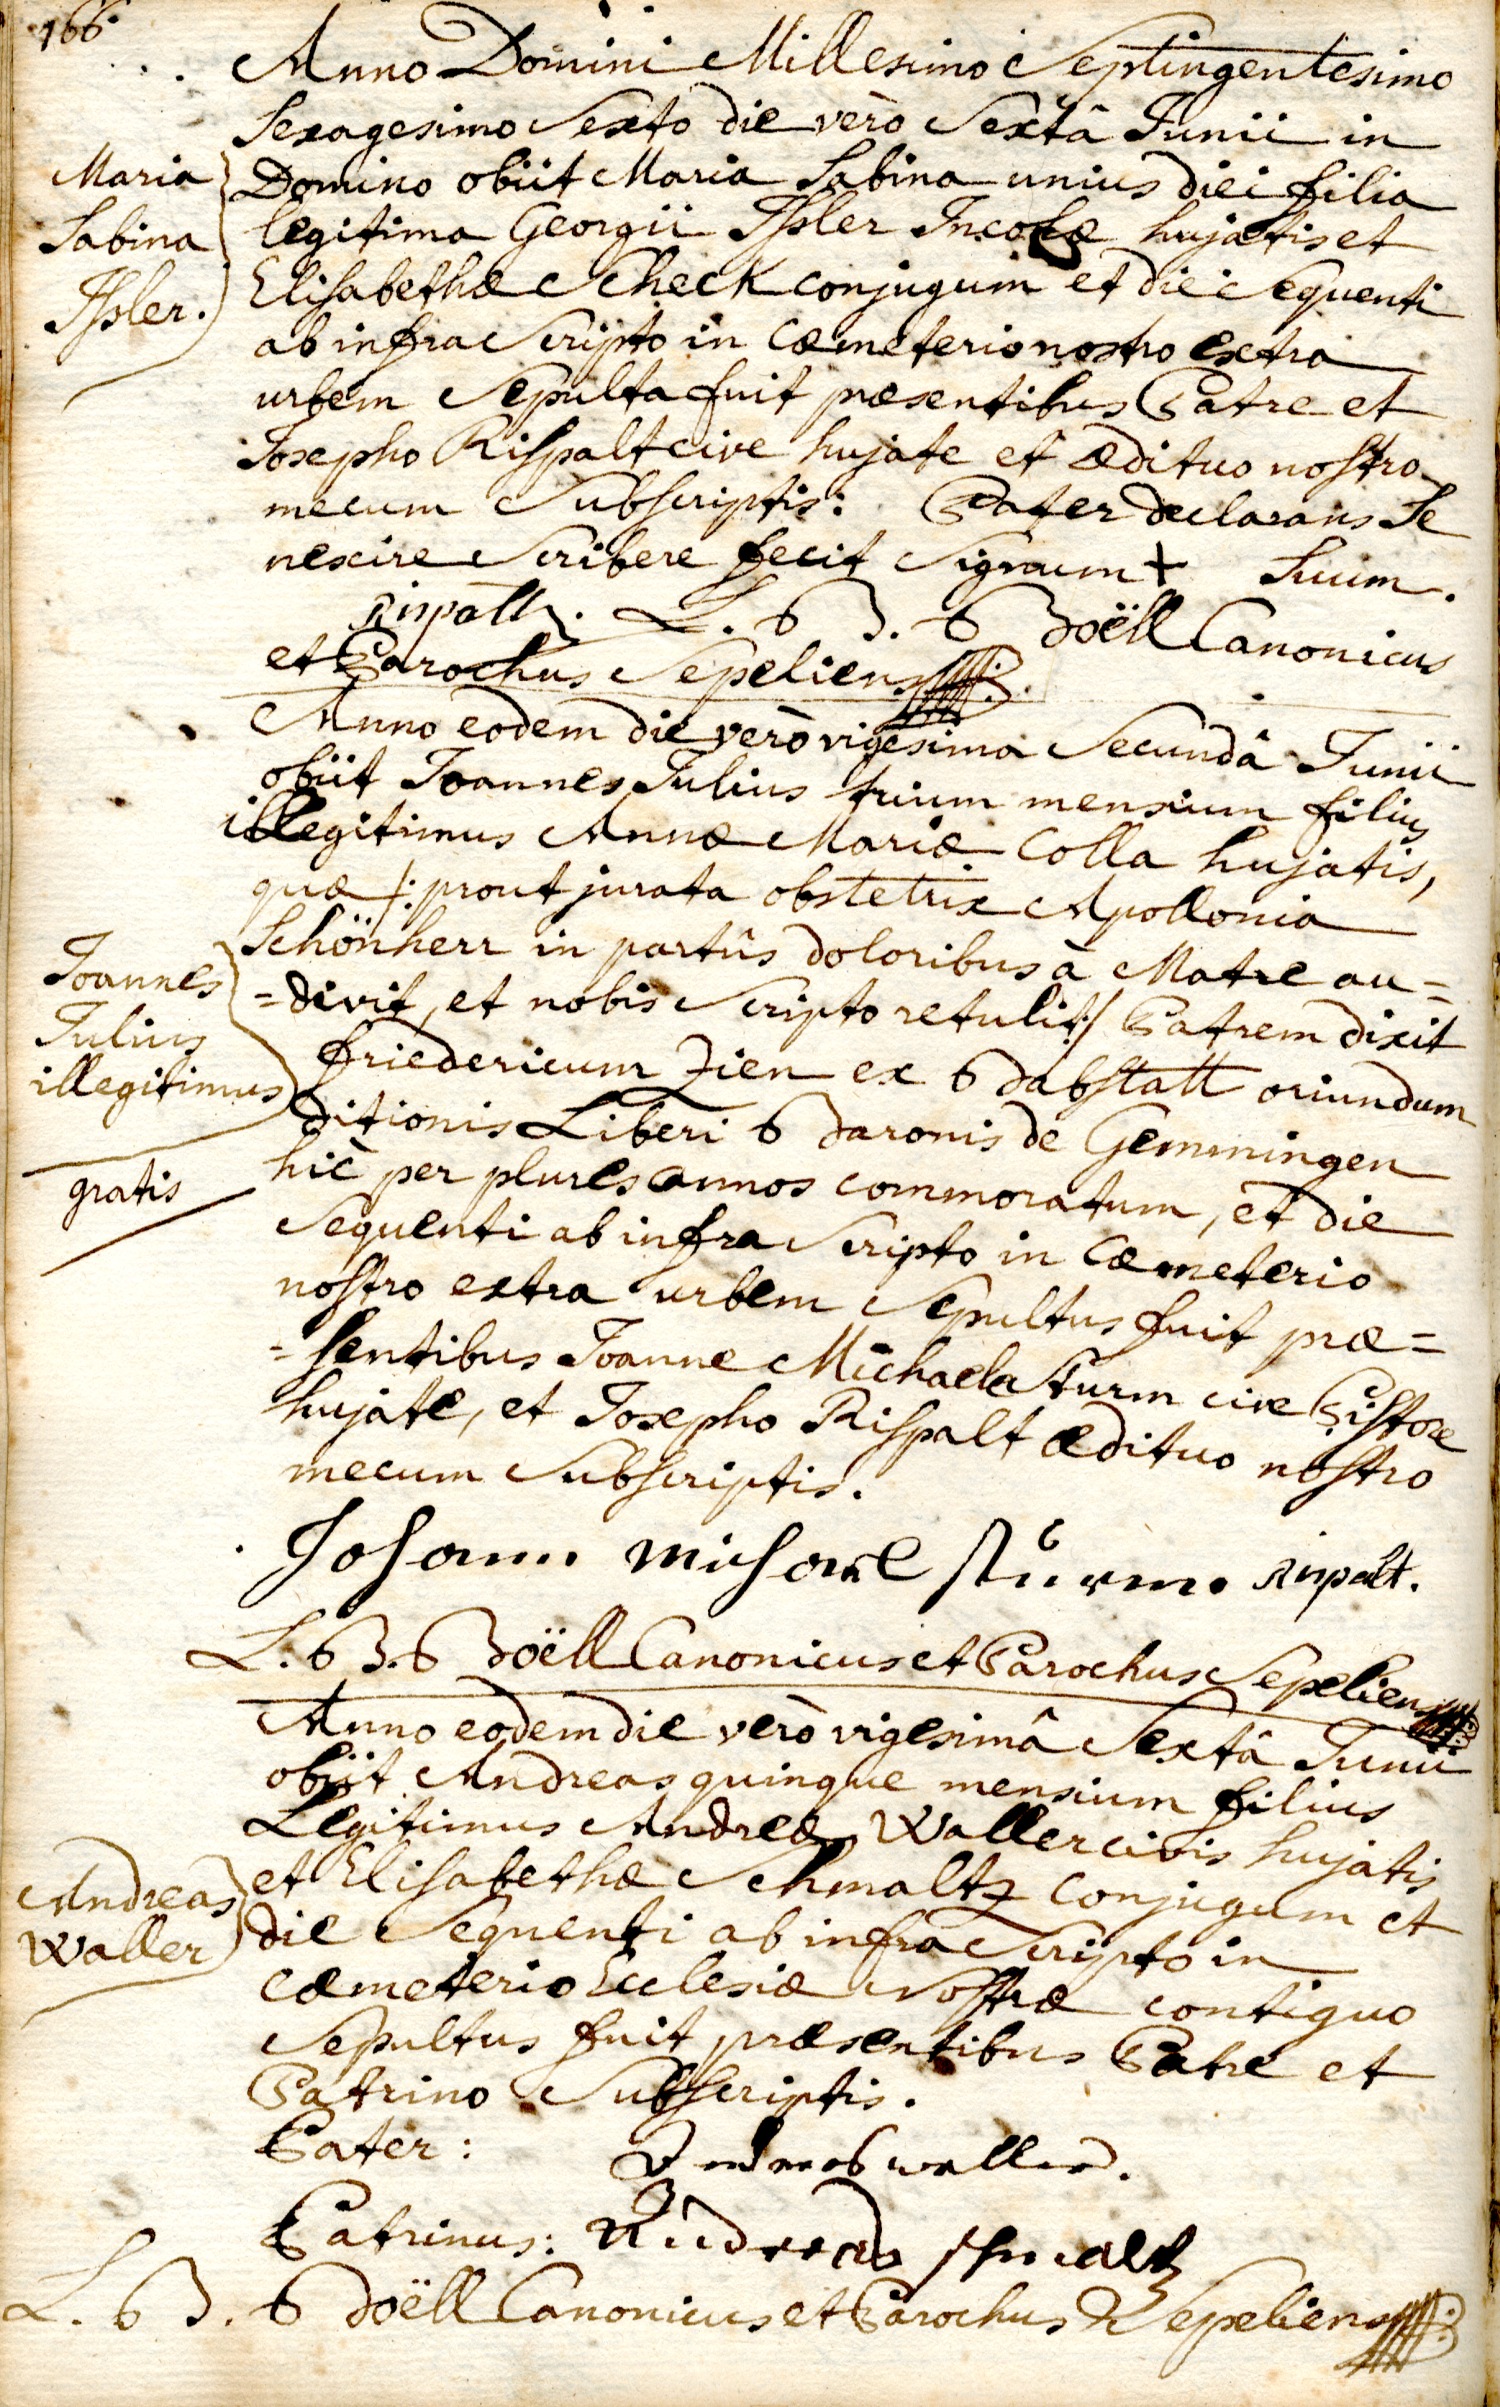 166
Anno Domini Millesimo Septingentesimo
Sexagesimo Sexto die verò Sextâ Junii in
Domino obiit Maria Sabina unius diei filia
legitima Georgii Isler Incolæ hujatis et
Elisabethæ Scheck conjugum et die Sequenti
ab infra Scripto in Cœmeterio nostro extra
urbem Sepulta fuit præsentibus Patre et
Josepho Rispalt cive hujate et ædituo nostro
mecum Subscriptis: Pater declarans Se
nescire Scribere fecit Signum + Suum.
Rispalt. L. B. Boëll Canonicus
et Parochus Sepeliens
Maria
Sabina
Isler.
Anno eodem die verò vigesima Secundâ Junii
obiit Joannes Julius trium mensium filius
illegitimus Annæ Mariæ Colla hujatis,
quæ /: prout jurata obstetrix Apollonia
Schönherr in partûs doloribus à Matre au=
=divit, et nobis Scripto retulit :/ Patrem dixit
friedericum Zien ex Babstatt oriundum
ditionis Liberi Baronis de Gemmingen
hic per plures annos commoratum, et die
Sequenti ab infra Scripto in Cœmeterio
nostro extra urbem Sepultus fuit præ=
=sentibus Joanne Michaele Sturm cive Pistore
hujate, et Josepho Rispalt ædituo nostro
mecum Subscriptis.
Joannes
Julius
illegitimus
gratis
Johann Michael Sturm. Rispalt.
L. B. Boëll Canonicus et Parochus Sepeliens
Anno eodem die verò vigesimâ Sextâ Junii
obiit Andreas quinque mensium filius
Legitimus Andreæ Waller civis hujatis
et Elisabethæ Schmaltz Conjugum et
die Sequenti ab infra Scripto in
cœmeterio Ecclesiæ Nostræ contiguo
Sepultus fuit præsentibus Patre et
Patrino Subscriptis.
Andreas
Waller
Pater: Andreas waller.
Patrinus: Andreas schmaltz
L. B. Boëll Canonicus et Parochus Sepeliens